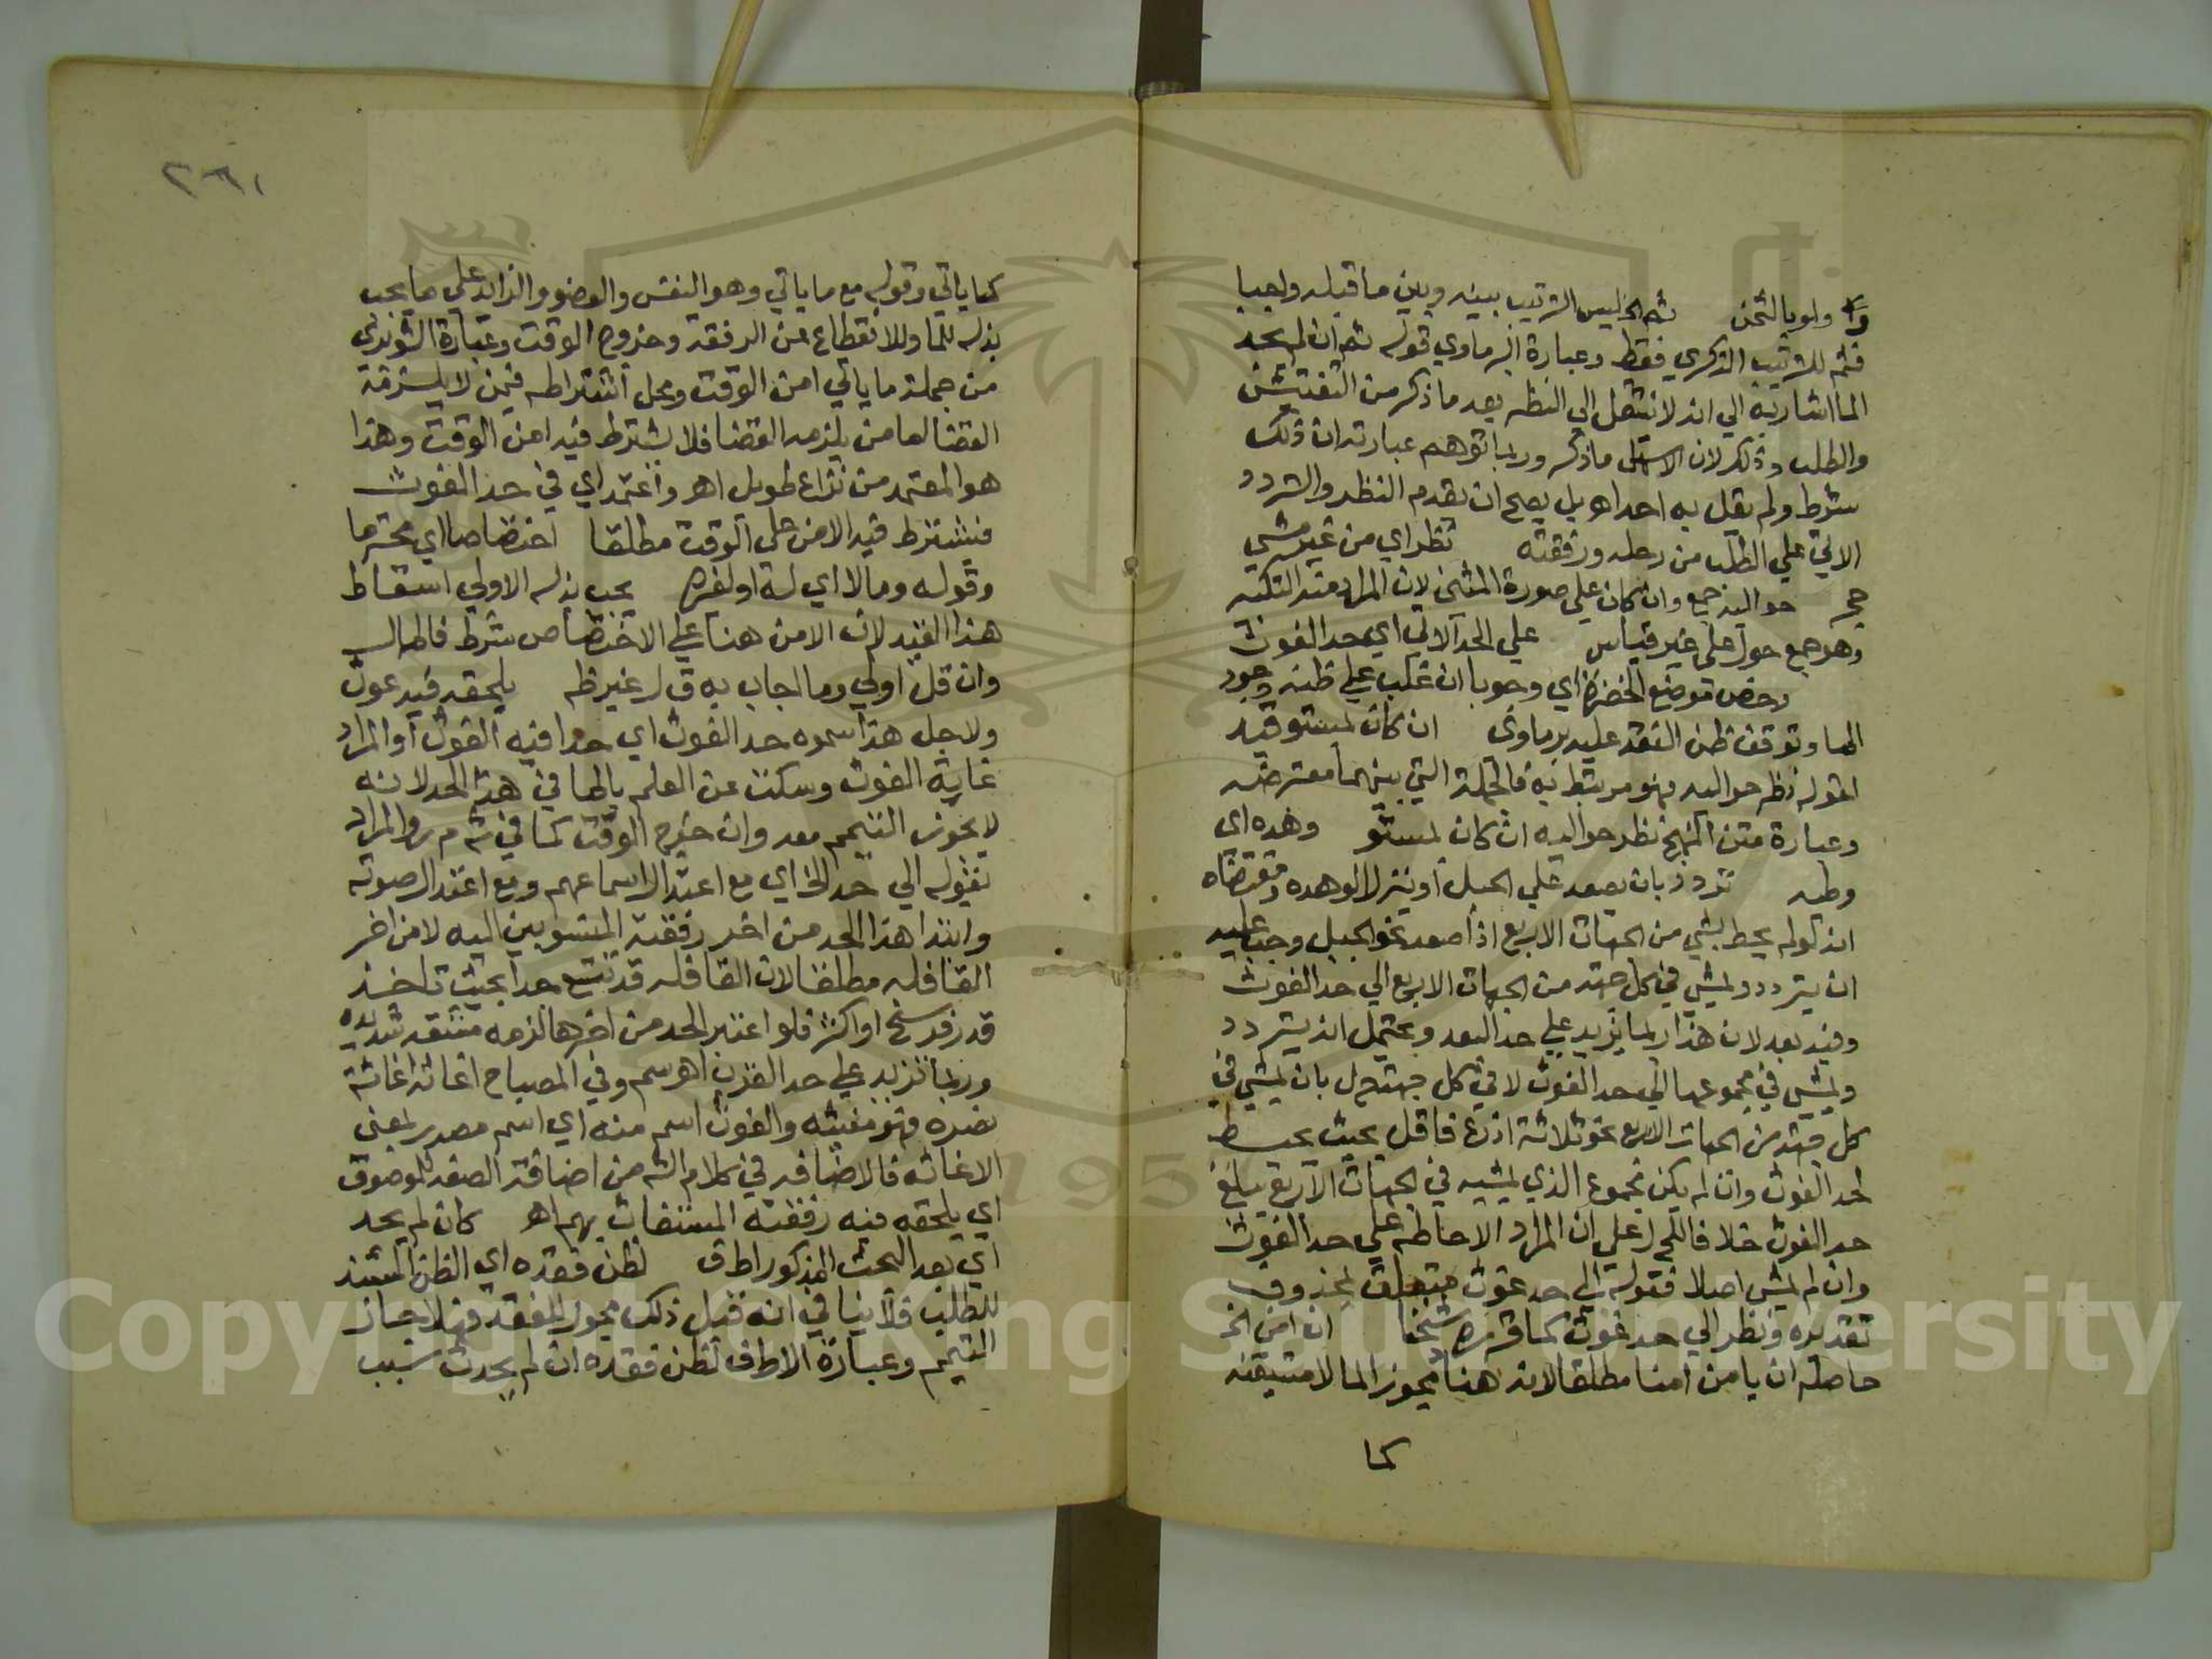 ولو بالثمن ثم الخ ليس الترتيب بينه وبين ما قبله واجبا
فثم للترتيب الذكري فقط وعبارة البرماوي قوله ثم ان لم يجد
الما اشار به الي انه لا ينتقل الي النظر بعد ما ذكر من التفتيش
والطلب وذلك لان الاسهل ما ذكر وربما توهم عبارته ان ذلك
شرط ولم يقل به احد اهـ بل يصح ان يقدم النظر والتردد
الاتي علي الطلب من رحله ورفقته نظر اي من غير مشي
حج حواليه جمع وان كان علي صورة المثني لان المراد منه التكثير
وهو جمع حول علي غير قياس علي الحد الاتي اي حد الغوث
وخص موضع الخضرة اي وجوبا ان غلب علي ظنه وجود
الما وتوقف ظن الفقد عليه برماوي ان كان بمستو قيد
لقوله نظر حواليه فهو مرتبط به فالجملة التي بينهما معترضة
وعبارة متن المنهج نظر حواليه ان كان بمستو وهده اي
وطيه تردد بان يصعد علي الجبل او ينزل الوهده ومقتضاه
انه لو لم يحط بشي من الجهات الاربع اذا صعد نحو الجبل وجب عليه
ان يتردد ويمشي في كل جهة من الجهات الاربع الي حد الغوث
وفيه بعد لان هذا ربما يزيد علي حد البعد ويحتمل انه يتردد
ويمشي في مجموعها الي حد الغوث لا في كل جهة حل بان يمشي في
كل جهة من الجهات الاربع نحو ثلاثة اذرع فاقل بحيث يحيط
بحد الغوث وان لم يكن مجموع الذي يمشيه في الجهات الاربع يبلغ
حد الغوث خلافا للحل علي ان المراد الاحاطه علي حد الغوث
وان لم يمش اصلا فقوله الي حد غوث متعلق بمحذوف
تقديره ونظر الي حد غوث كما قرره شيخنا ان امن الخ
حاصله ان يامن امنا مطلقا لانه هنا مجوز الما لا متيقنه
كما
٢٦١
كما ياتي وقوله مع ما ياتي وهو النفس والعضو والزايد علي ما يجب
بذله للما وللانقطاع عن الرفقة وخروج الوقت وعبارة الشوبري
من جملة ما ياتي امن الوقت ومحل اشتراطه فيمن لا يلزمه
القضا اما من يلزمه القضا فلا يشترط فيه امن الوقت وهذا
هو المعتمد من نزاع طويل اهـ واعتمد اي في حد الغوث
فيشترط فيه الامن علي الوقت مطلقا اختصاصا اي محترما
وقوله ومالا اي له او لغيره يجب بذله الاولي اسقاط
هذا القيد لان الامن هنا علي الاختصاص شرط فالمال
وان قل اولي وما اجاب به ق ل غير ظه يلحقه فيه غوث
ولاجل هذا سموه حد الغوث اي حدا فيه الغوث او المراد
غاية الغوث وسكت عن العلم بالما في هذا الحد لانه
لا يجوز التيمم معه وان خرج الوقت كما في ش م ر والمراد
بقوله الي حد الخ اي مع اعتدال اسماعهم ومع اعتدال صوته
وابتدا هذا الحد من اخر رفقته المنسوبين اليه لا من اخر
القافله مطلقا لان القافله قد تتسع جدا بحيث تاخذ
قدر فرسخ او اكثر فلو اعتبر الحد من اخرها لزمه مشقه شديده
وربما تزيد علي حد القرب اهـ سم وفي المصباح اغاثه اغاثة
نصره فهو مغيثه والغوث اسم منه اي اسم مصدر بمعني
الاغاثه فالاضافه في كلام الش من اضافة الصفه للموصوف
اي يلحقه فيه رفقته المستغاث بهم اهـ كان لم يجد
اي بعد البحث المذكور اط ف لظن فقده اي الظن المستند
للطلب فلا ينافي انه قبل ذلك مجوز للفقد فهلا جاز
التيمم وعبارة الاط ف لظن فقده ان لم يحدث سبب
Copyright © King Saud University